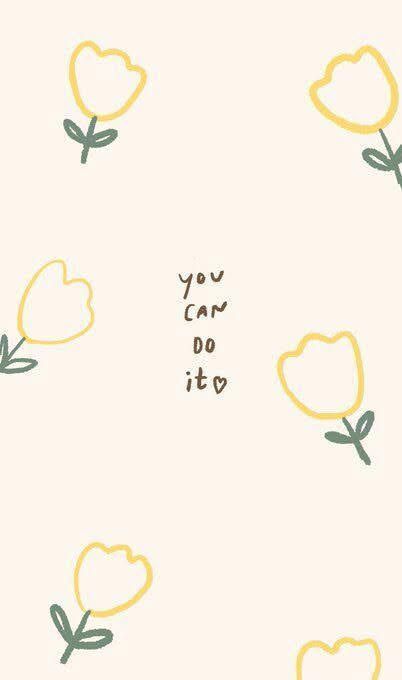 you
CAN
DO
it♡